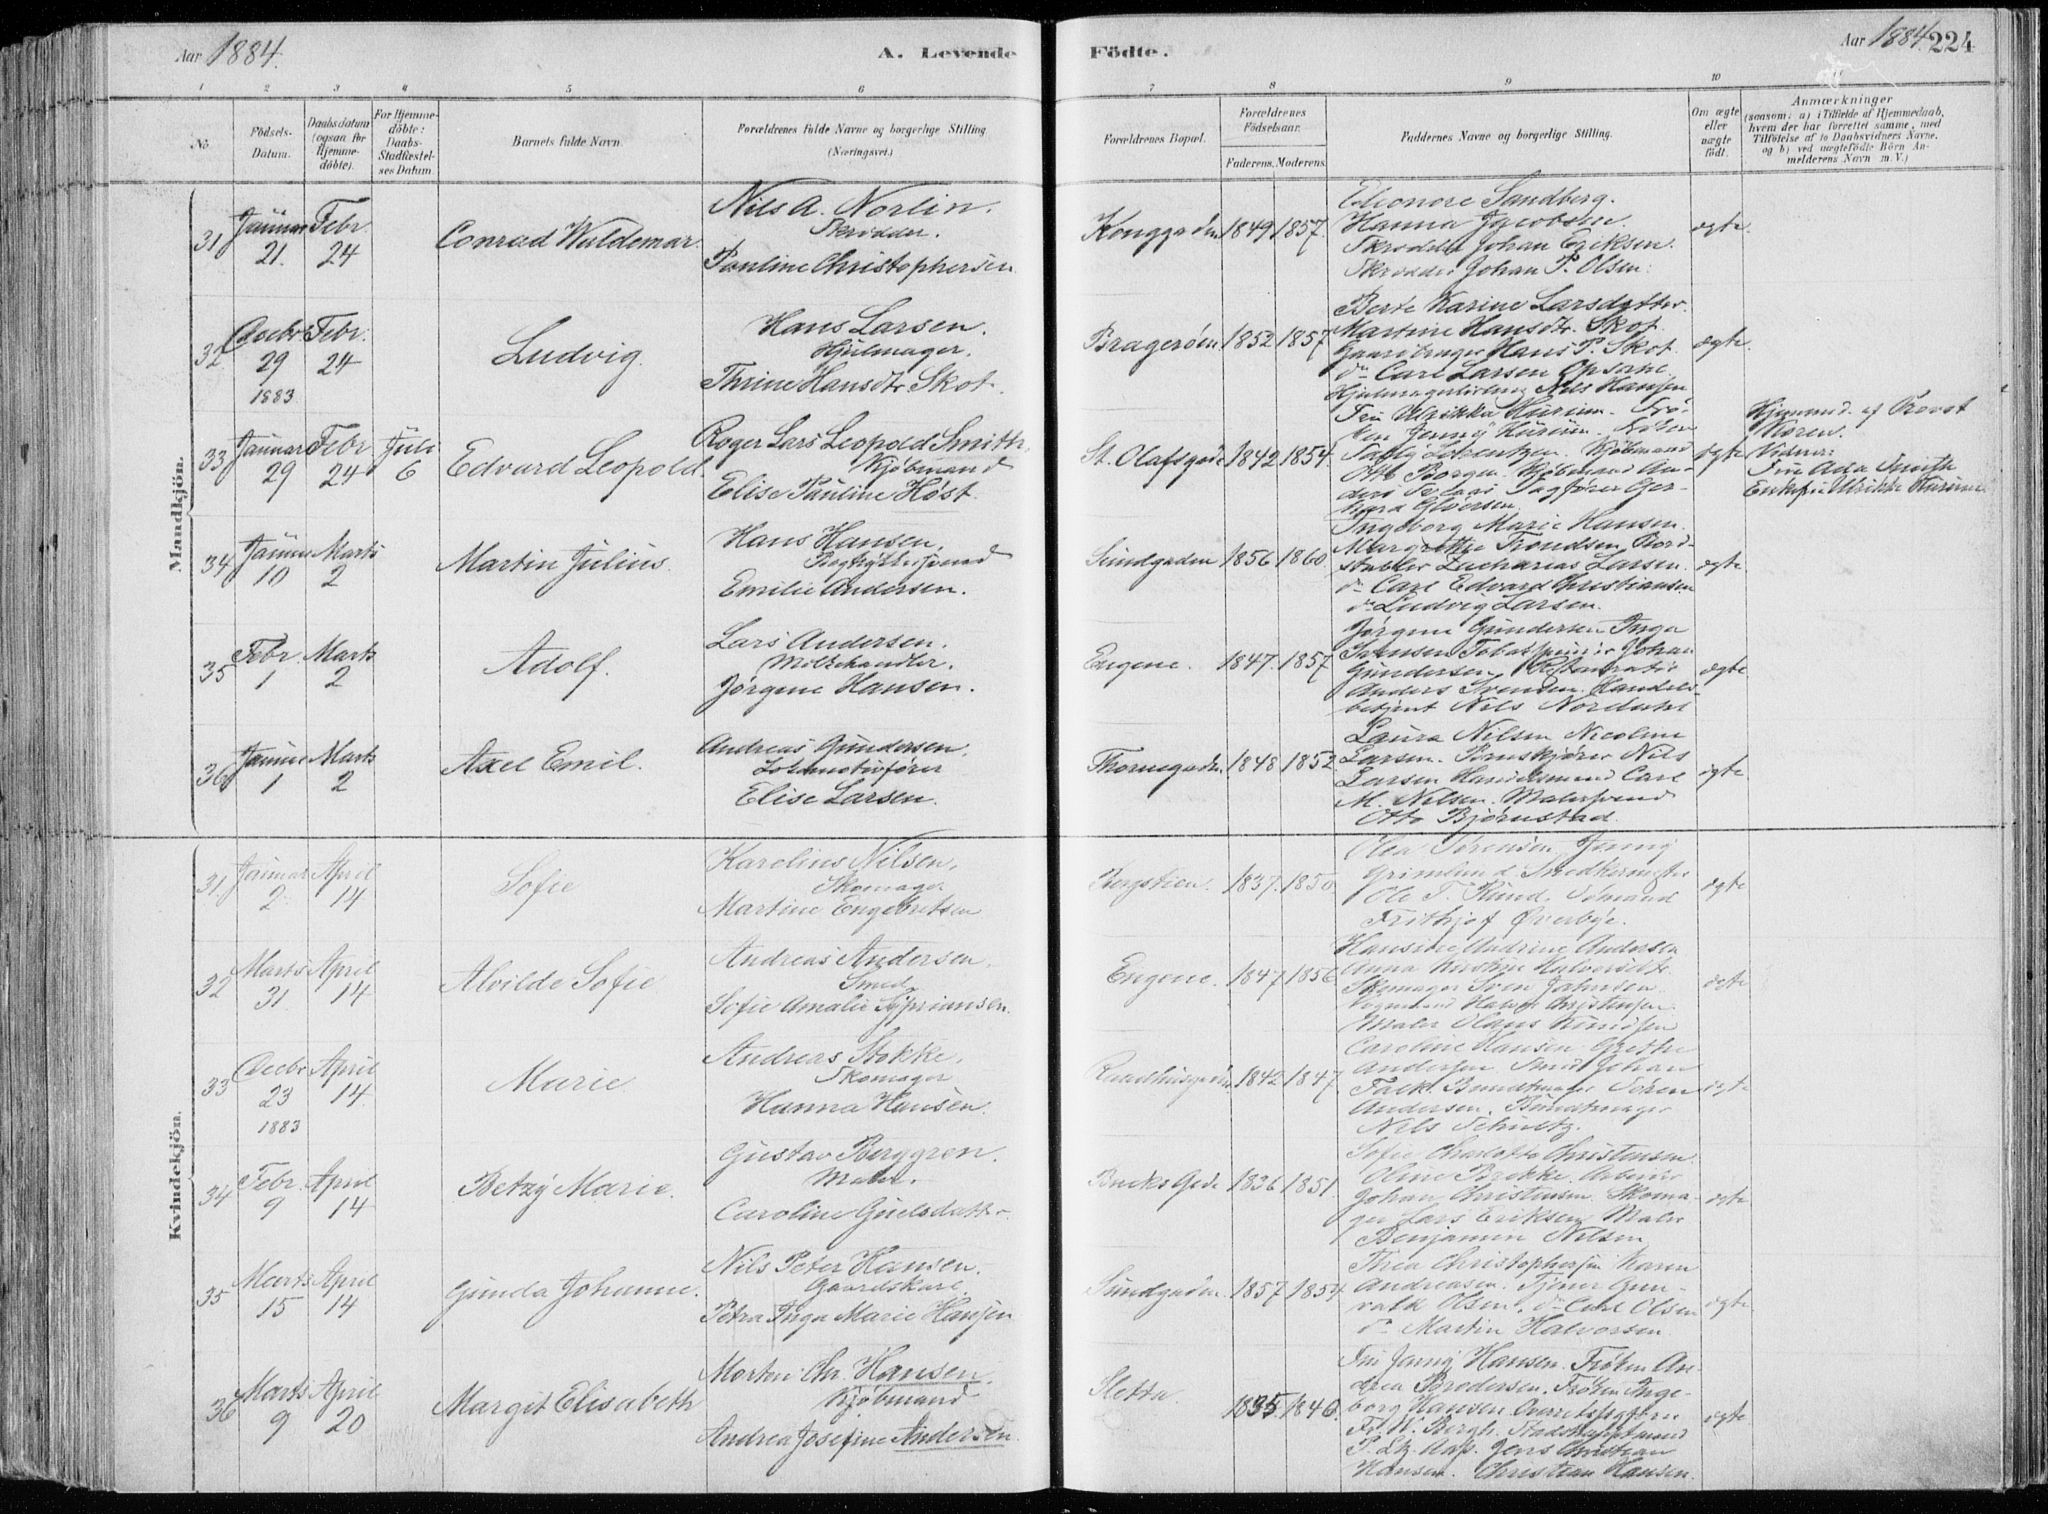 Aar 1884.
A. Levende
Födte.
Aar 1884.
224
1 2 3 4 5 6
7 8 9 10
No.
Födsels-
Datum.
Daabsdatum
(ogsaa for
Hjemme-
döbte).
For Hjemme-
döbte:
Daabs-
Stadfæstel-
ses Datum.
Barnets fulde Navn.
Forældrenes fulde Navne og borgerlige Stilling.
(Næringsvei.)
Forældrenes Bopæl.
Forældrenes
Födselsaar.
Faderens. Moderens.
Faddernes Navne og borgerlige Stilling.
Om ægte
eller
uægte
født.
Anmærkninger
(saasom: a) i Tilfælde af Hjemmedaab,
hvem der har forrettet samme, med
Tilföielse af to Daabsvidners Navne,
og b) ved uægtefödte Börn An-
melderens Navn m. V.)
Mandkjön.
31
Januar
21.
Febr.
24
Conrad Waldemar.
Nils A. Norlin.
Skrædder.
Pauline Christophersen
Konggaden
1849
1857.
Eleonore Sandberg.
Hanna Jacobsen
Skrædder Johan Eriksen.
Skrædder Johan P. Olsen.
ægte.
32
Decbr
29
1883.
Febr.
24
Ludvig.
Hans Larsen.
Hjulmager.
Thrine Hansdtr Skot.
Bragerøen
1852
1857
Berte Karine Larsdatter
Martine Hansdtr. Skot.
Gaardbruger Hans P. Skot
do Carl Larsen Opsahl
Nils Hansen
ægte.
33
Januar
29
Febr
24
Juli
6
Edvard Leopold.
Roger Lars Leopold Smith,
Kjøbmand
Elise Pauline Høst.
St. Olafsgade
1842
1854.
Fru Ulrikka Hurum. Frø-
ken Jenny Hurum. Frøken
Lorentzen. Kjøbmand
Otto Borgen. Kjøbmand An-
ders Sagfører Ger-
hard Gløersen.
ægte
Hjemmed. af Provst
Kiøren.
Vidner:
Fru Ada Smith
Enkefru Ulrikke Hurum
34
Januar
10
Marts
2
Martin Julius.
Hans Hansen,
Emilie Andersen.
Sundgaden
1856
1860.
Ingeborg Marie Hansen.
Margrethe Trondsen Bord-
stabler Zacharias Larsen.
do Carl Edvard Christiansen
do Ludvig Larsen.
ægte.
35
Febr.
1
Marts
2
Adolf.
Lars Andersen.
Melkehandler.
Jørgene Hansen.
Engene.
1847.
1857.
Jørgine Gundersen Inga
Svensen Tobakspinder Johan
Gundersen,
Anders Svensen. Handels-
betjent Nils Nordahl
ægte.
36
Januar
1
Marts
2
Axel Emil.
Andreas Gundersen,
Lokomotivfører
Elise Larsen.
Thornegaden
1848
1852.
Laura Nilsen Nicoline
Larsen. Nils
Larsen Handelsmand Carl
M. Nilsen. Malersvend
Otto Bjørnstad.
ægte.
Kvindekjön.
31
Januar
2.
April
14
Sofie
Karolius Nilsen,
Skomager
Martine Engebretsen
Bergstien.
1837.
1850.
Olea Sørensen, Jenny
Grimlund Snedkermester
Ole T. Sømand
Frithjof Øverbye.
ægte
32
Marts
31
April
14
Alvilde Sofie
Andreas Andersen.
Smed
Sofie Amalie Sypriansen.
Engene.
1847
1856.
Hansine Andrine Andersen
Anna Kirstine Halvorsdtr
Skomager Sven Jahnsen.
Vognmand Halvor Christensen
Maler Olaus Knudsen
ægte
33
Decbr
23
1883
April
14.
Marie.
Andreas Stokke.
Skomager
Hanna Hansen.
Raadhusgaden
1842
1847.
Caroline Hansen Grethe
Andersen Smed Johan
Falk. Bundtmager Søren
Andersen. Bundtmager
Nils Schultz.
ægte
34
Febr.
9
April
14
Betzy Marie.
Gustav Berggren.
Maler.
Caroline
Bucks Gade
1836
1851.
Sofie Charlotte Christensen.
Oline Brekke. Arbeider
Johan Christensen. Skoma-
ger Lars Eriksen, Maler
Benjamin Nilsen
ægte
35
Marts
15
April
14
Gunda Johanne.
Nils Peter Hansen.
Gaardskarl.
Petra Inga Marie Hansen
Sundgaden
1857
1854
Thea Christophersen Karen
Andreasen. Tjener Gun-
vald Olsen. do Carl Olsen
do Martin Halvorsen.
ægte
36
Marts
9
April
20
Margit Elisabeth
Morten Chr. Hansen.
Kjøbmand
Andrea Josefine Andersen.
Sletta
1835.
1846.
Fru Jenny Hansen. Frøken An-
drea Brodersen. Frøken Inge-
borg Hansen Overretssagfører
Fr. W. Bergh. Stadshauptmand
P. Lz. Aas. Jens Christian
Hansen. Christian Hansen.
ægte